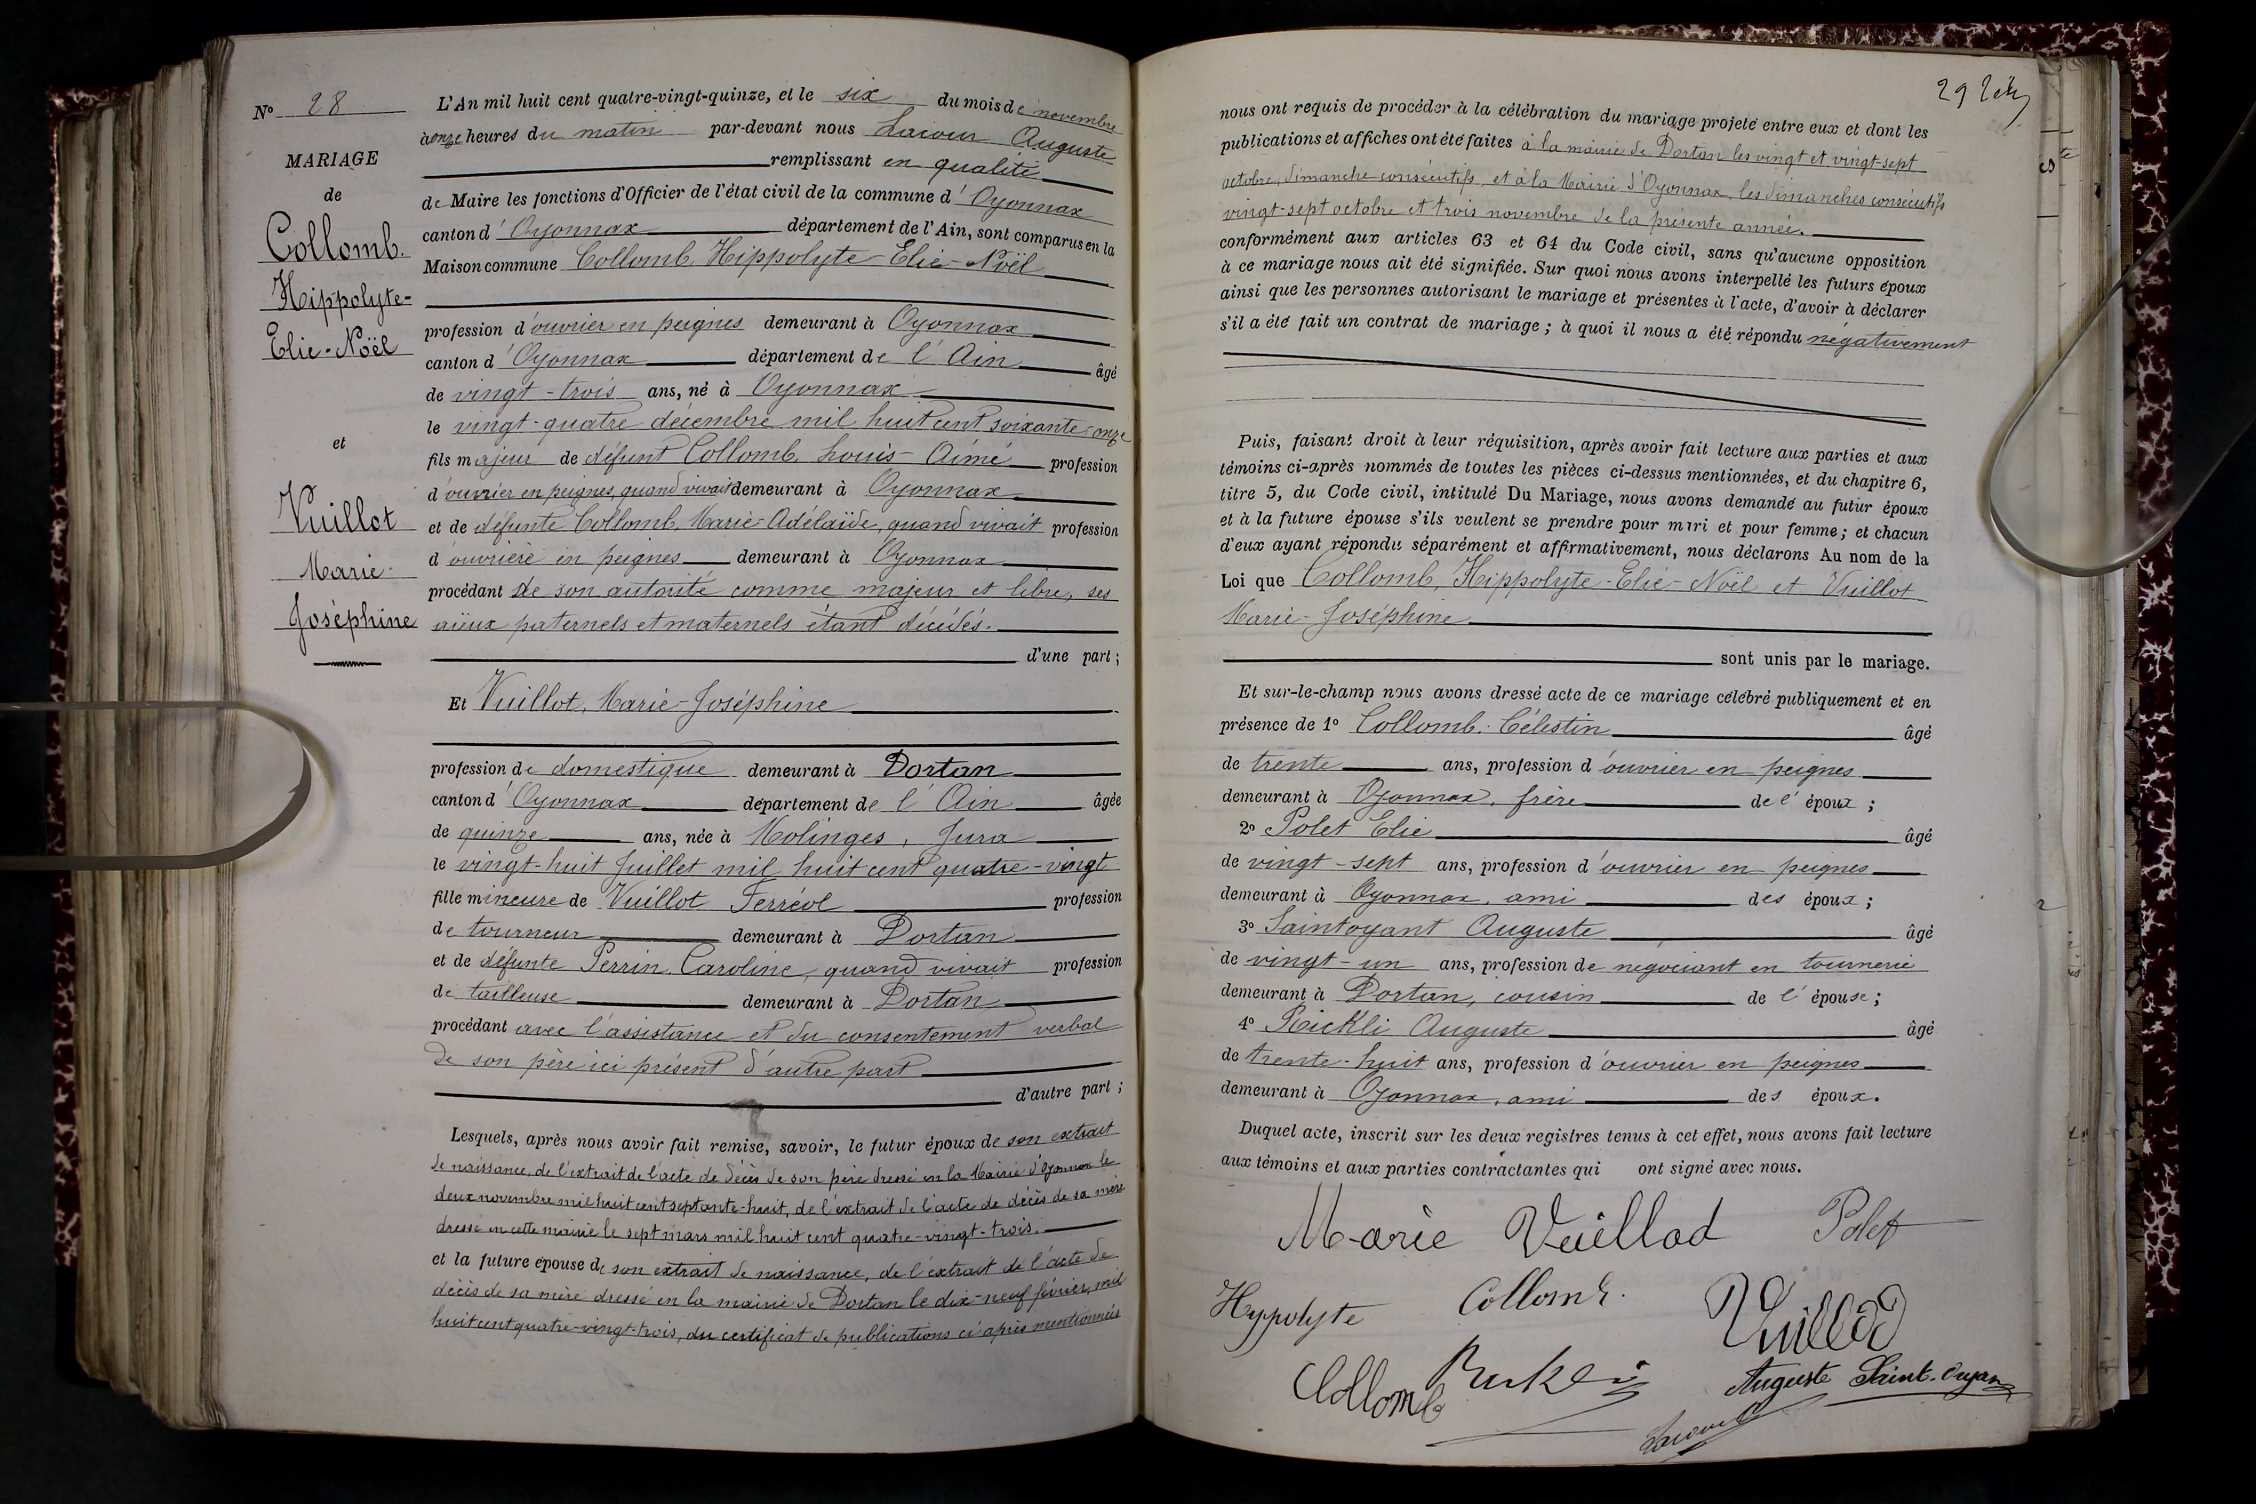 Nº 28
MARIAGE
de
Collomb.
Hippolyte-
Elie-Noël
et
Vuillot
Marie-
Joséphine
L'An mil huit cent quatre-vingt-quinze, et le six du mois de novembre
à onze heures du matin par-devant nous Lacour Auguste
remplissant en qualité
de Maire les fonctions d'Officier de l'état civil de la commune d'Oyonnax
canton d'Oyonnax département de l'Ain, sont comparus en la
Maison commune Collomb Hippolyte-Elie-Noël
profession d'ouvrier en peignes demeurant à Oyonnax
canton d'Oyonnax département de l'Ain âgé
de vingt-trois ans, né à Oyonnax
le vingt-quatre décembre mil huit cent soixante-onze
fils majeur de défunt Collomb Louis-Aimé profession
d'ouvrier en peignes, quand vivait demeurant à Oyonnax
et de défunte Collomb Marie-Adélaïde, quand vivait profession
d'ouvrière en peignes demeurant à Oyonnax
procédant de son autorité comme majeur et libre, ses
aïeux paternels et maternels étant décédés.
d'une part;
Et Vuillot, Marie-Joséphine
profession de domestique demeurant à Dortan
canton d'Oyonnax département de l'Ain âgée
de quinze ans, née à Molinges, Jura
le vingt-huit Juillet mil huit cent quatre-vingt
fille mineure de Vuillot Ferréol profession
de tourneur demeurant à Dortan
et de défunte Perrin Caroline, quand vivait profession
de tailleuse demeurant à Dortan
procédant avec l'assistance et du consentement verbal
de son père ici présent d'autre part
d'autre part;
Lesquels, après nous avoir fait remise, savoir, le futur époux de son extrait
de naissance, de l'extrait de l'acte de décès de son père dressé en la Mairie d'Oyonnax le
deux novembre mil huit cent septante-huit, de l'extrait de l'acte de décès de sa mère
dressé en cette mairie le sept mars mil huit cent quatre-vingt-trois.
et la future épouse de son extrait de naissance, de l'extrait de l'acte de
décès de sa mère dressé en la mairie de Dortan le dix-neuf février mil
huit cent quatre-vingt-trois, du certificat de publications ci après mentionnées
29
nous ont requis de procéder à la célébration du mariage projeté entre eux et dont les
publications et affiches ont été faites à la mairie de Dortan les vingt et vingt-sept
octobre, dimanche consécutifs, et à la Mairie d'Oyonnax les dimanches consécutifs
vingt-sept octobre et trois novembre de la présente année.
conformément aux articles 63 et 64 du Code civil, sans qu'aucune opposition
à ce mariage nous ait été signifiée. Sur quoi nous avons interpellé les futurs époux
ainsi que les personnes autorisant le mariage et présentes à l'acte, d'avoir à déclarer
s'il a été fait un contrat de mariage; à quoi il nous a été répondu négativement
Puis, faisant droit à leur réquisition, après avoir fait lecture aux parties et aux
témoins ci-après nommés de toutes les pièces ci-dessus mentionnées, et du chapitre 6,
titre 5, du Code civil, intitulé Du Mariage, nous avons demandé au futur époux
et à la future épouse s'ils veulent se prendre pour mari et pour femme; et chacun
d'eux ayant répondu séparément et affirmativement, nous déclarons Au nom de la
Loi que Collomb, Hippolyte-Elie-Noël et Vuillot
Marie-Joséphine
sont unis par le mariage.
Et sur-le-champ nous avons dressé acte de ce mariage célébré publiquement et en
présence de 1º Collomb. Célestin âgé
de trente ans, profession d'ouvrier en peignes
demeurant à Oyonnax, frère de l'époux;
2º Polet Elie âgé
de vingt-sept ans, profession d'ouvrier en peignes
demeurant à Oyonnax, ami des époux;
3º Saintoyant Auguste âgé
de vingt-un ans, profession de négociant en tournerie
demeurant à Dortan, cousin de l'épouse;
4º Rickli Auguste âgé
de trente-huit ans, profession d'ouvrier en peignes
demeurant à Oyonnax, ami des époux.
Duquel acte, inscrit sur les deux registres tenus à cet effet, nous avons fait lecture
aux témoins et aux parties contractantes qui ont signé avec nous.
Marie Vuillod Polet
Hyppolyte Collomb. Vuillod
Collomb Auguste Saint-Oyan